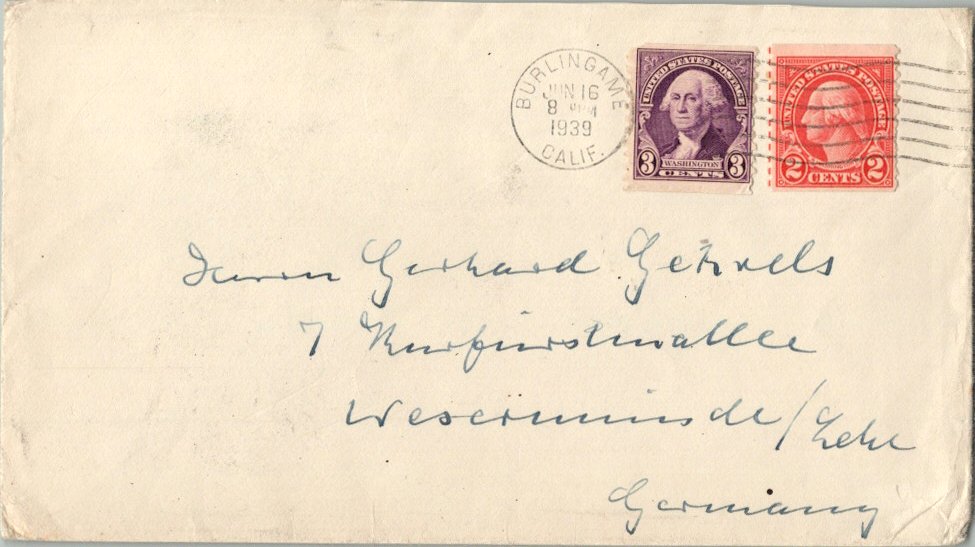 BURLINGAME
JUN 16
8 PM
1939
CALIF.
UNITED STATES POSTAGE
3 WASHINGTON 3
CENTS
UNITED STATES POSTAGE
2 CENTS 2
Herrn Gerhard
7 Kurfürstenallee
Wesermünde/Lehe
Germany